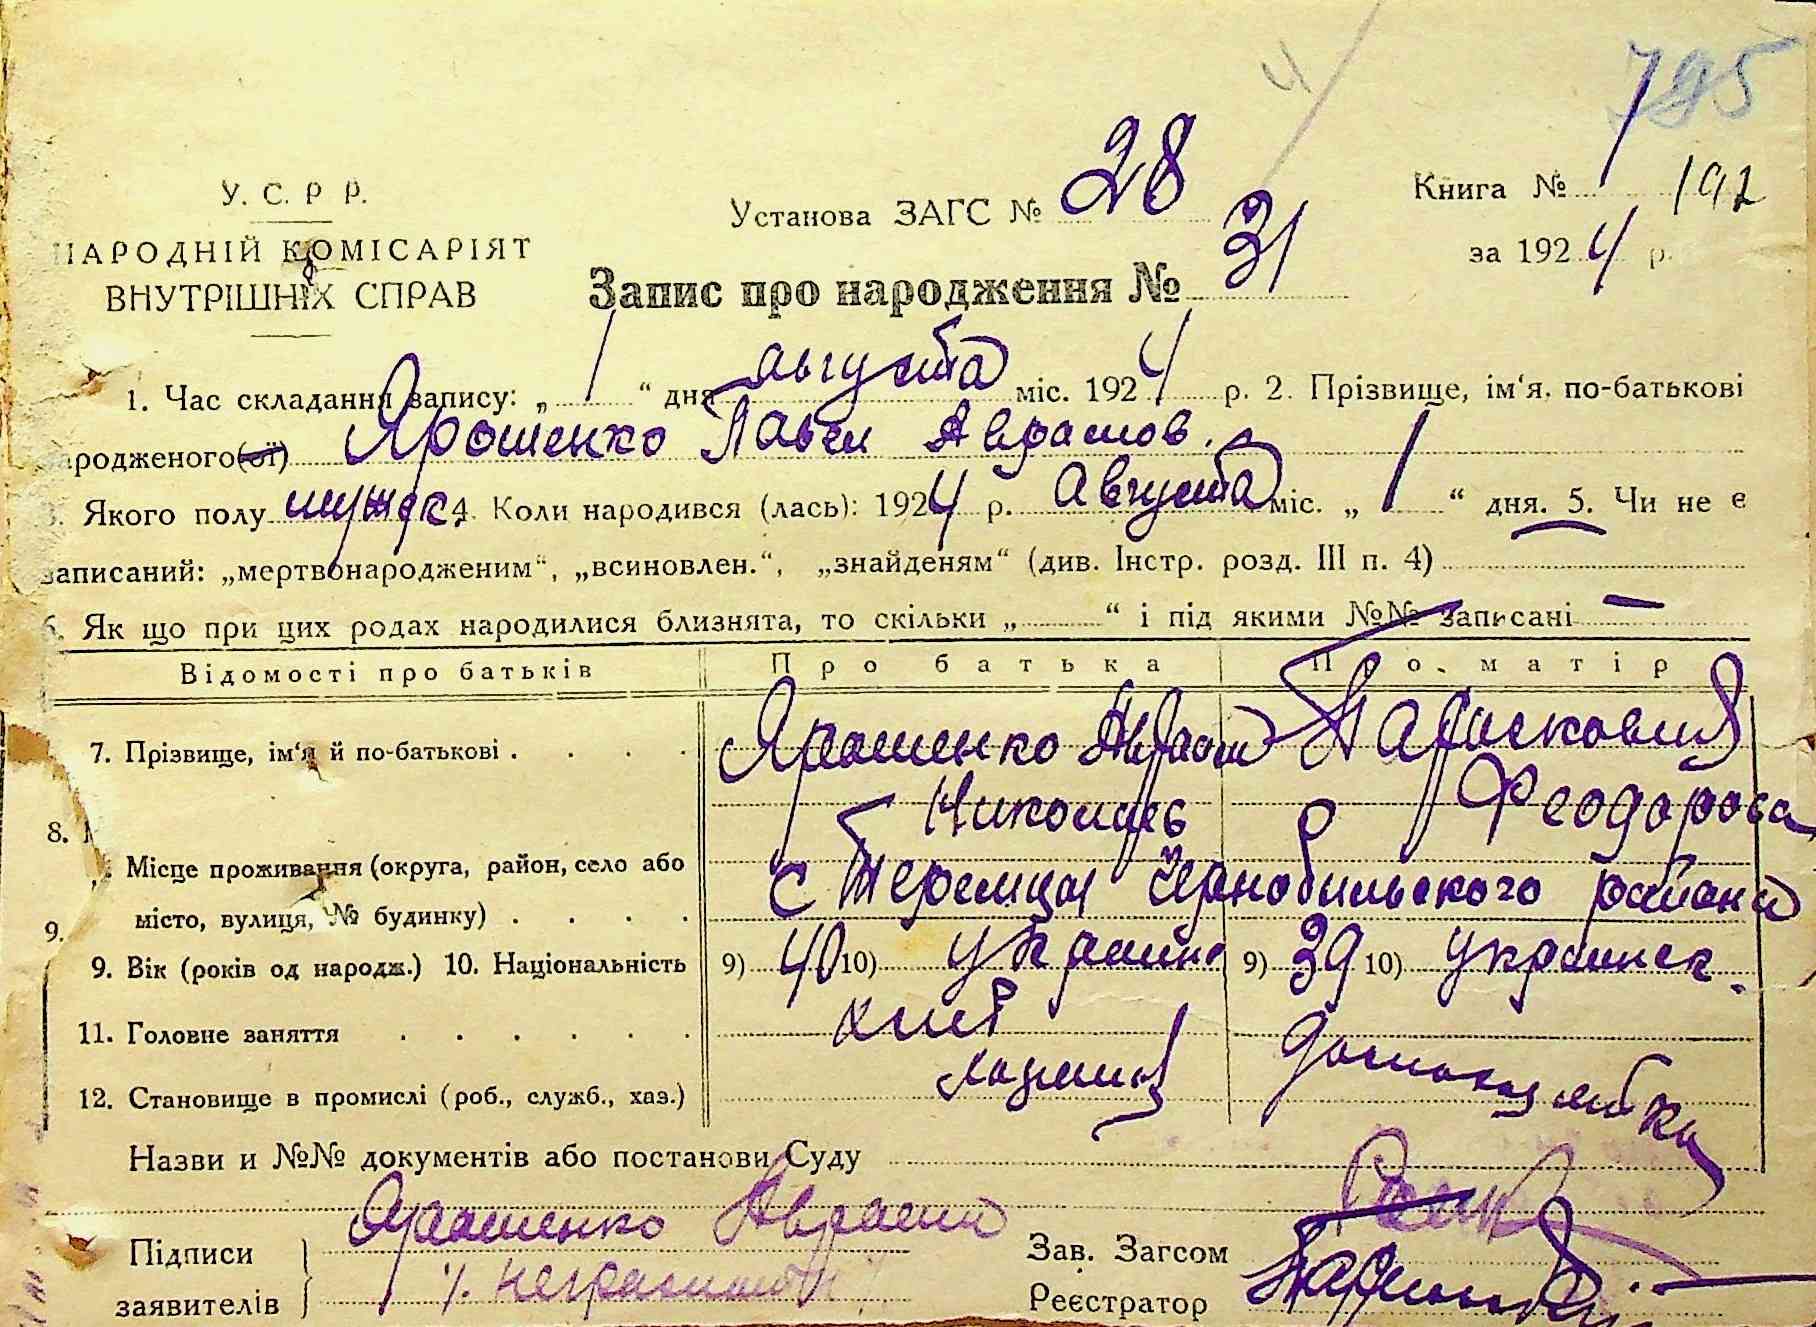 795
У. С. Р Р.
НАРОДНІЙ КОМІСАРІЯТ
ВНУТРІШНІХ СПРАВ
Установа ЗАГС № 28
Книга № 1 192
за 1924 р.
Запис про народження № 31
1. Час складання запису: „ 1 “ дня августа міс. 1924 р. 2. Прізвище, ім‘я, по-батькові
родженого(ої) Ярошенко Павел Аврамов.
3. Якого полу мужск. 4. Коли народився (лась): 1924 р. Августа міс. „ 1 “ дня. 5. Чи не є
записаний: „мертвонародженим“, „всиновлен.“, „знайденям“ (див. Інстр. розд. III п. 4)
6. Як що при цих родах народилися близнята, то скільки „ “ і під якими №№ записані —
Відомості про батьків Про батька Про матір
7. Прізвище, ім‘я й по-батькові . . . . Ярошенко Аврам Николаев Парасковия Феодорова
8. Місце проживання (округа, район, село або
місто, вулиця, № будинку) . . . . с Теремцы Чернобильского района
9.
9. Вік (років од народж.) 10. Національність 9) 40 10) украин 9) 39 10) украинск.
11. Головне заняття . . . . . . хлеб
12. Становище в промислі (роб., служб., хаз.) хазяин домохозяйка
Назви и №№ документів або постанови Суду
Підписи
заявителів
Ярошенко Аврам
неграмотн
Зав. Загсом
Реєстратор